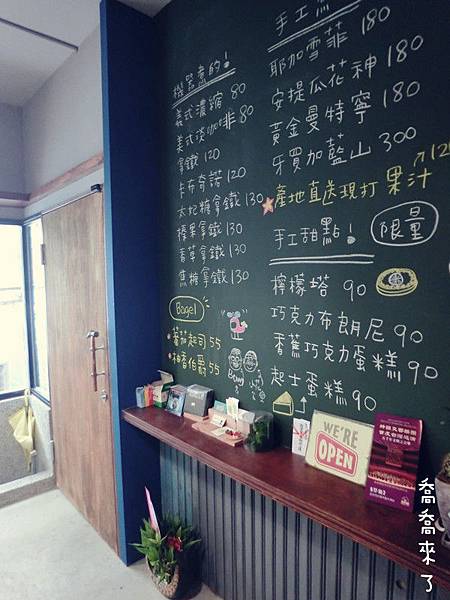 機器煮的！
義式濃縮 80
美式淡咖啡 80
拿鐵 120
卡布奇諾 120
太妃糖拿鐵 130
榛果拿鐵 130
香草拿鐵 130
焦糖拿鐵 130
Bagel
蕃茄起司 55
柚香伯爵 55
手工
耶加雪菲 180
安提瓜花神 180
黃金曼特寧 180
牙買加藍山 300
產地直送現打果汁
手工甜點！
限量
檸檬塔 90
巧克力布朗尼 90
香蕉巧克力蛋糕 90
起士蛋糕 90
WE'RE
OPEN
喬喬來了